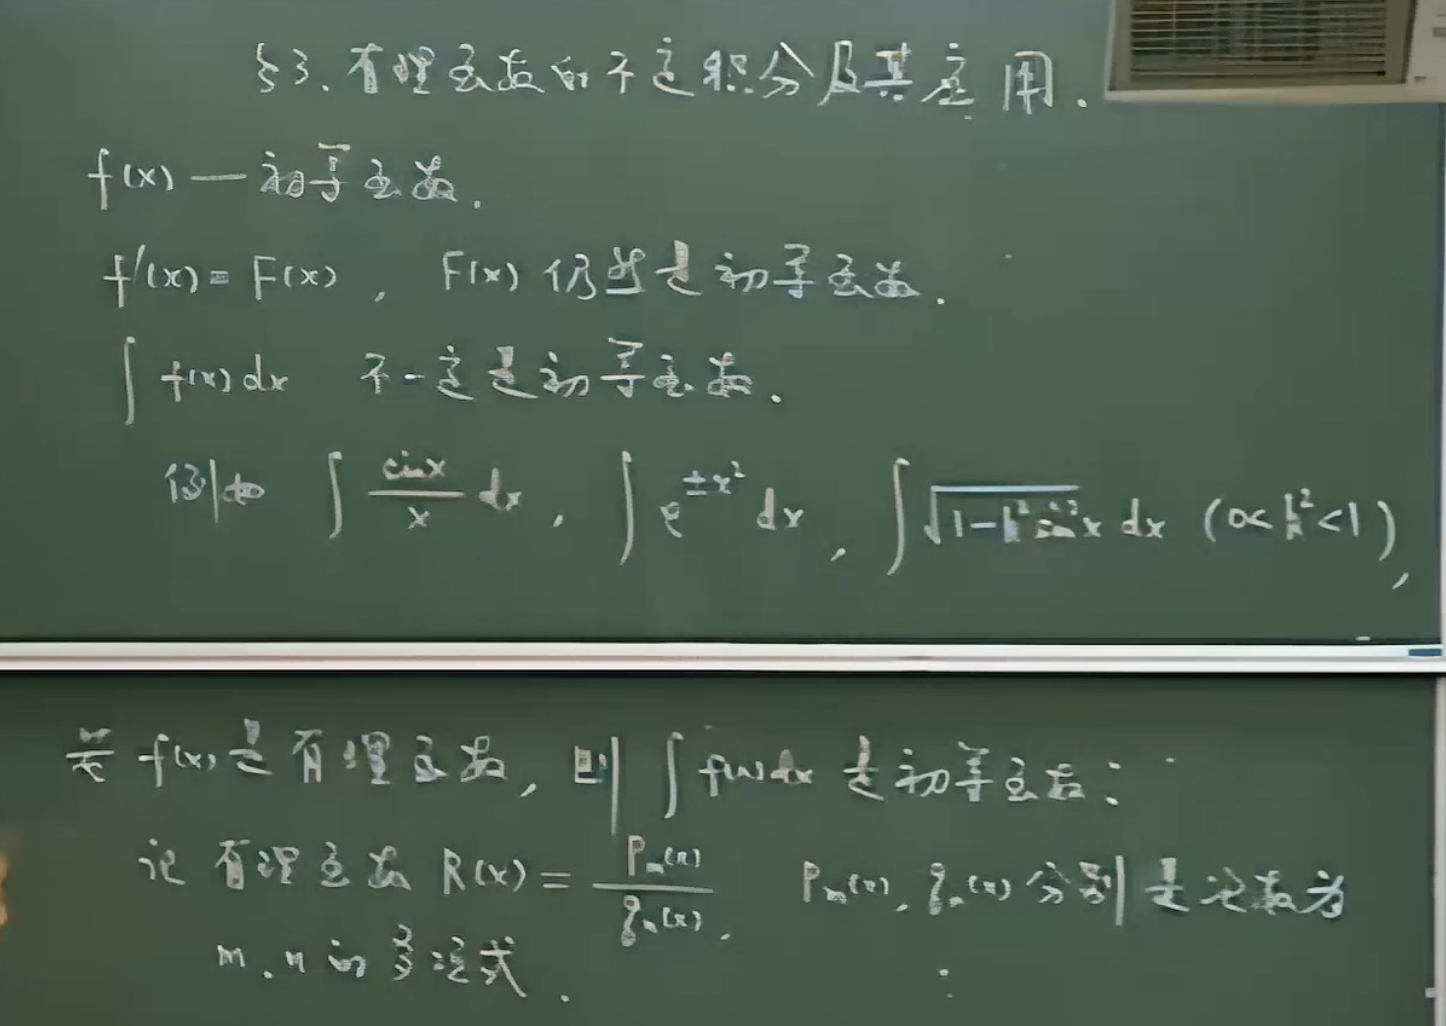 §3. 有理函数的不定积分及其应用.
f(x) — 初等函数.
f'(x) = F(x), F(x) 仍然是初等函数.
∫ f(x) dx 不一定是初等函数.
例如 ∫ sinx/x dx, ∫ e^{±x²} dx, ∫ √(1-k² sin² x) dx (0<k²<1),
若 f(x) 是有理函数, 则 ∫ f(x) dx 是初等函数:
记 有理函数 R(x) = P_m(x)/q_n(x), P_m(x), q_n(x) 分别是次数为
m, n 的多项式.